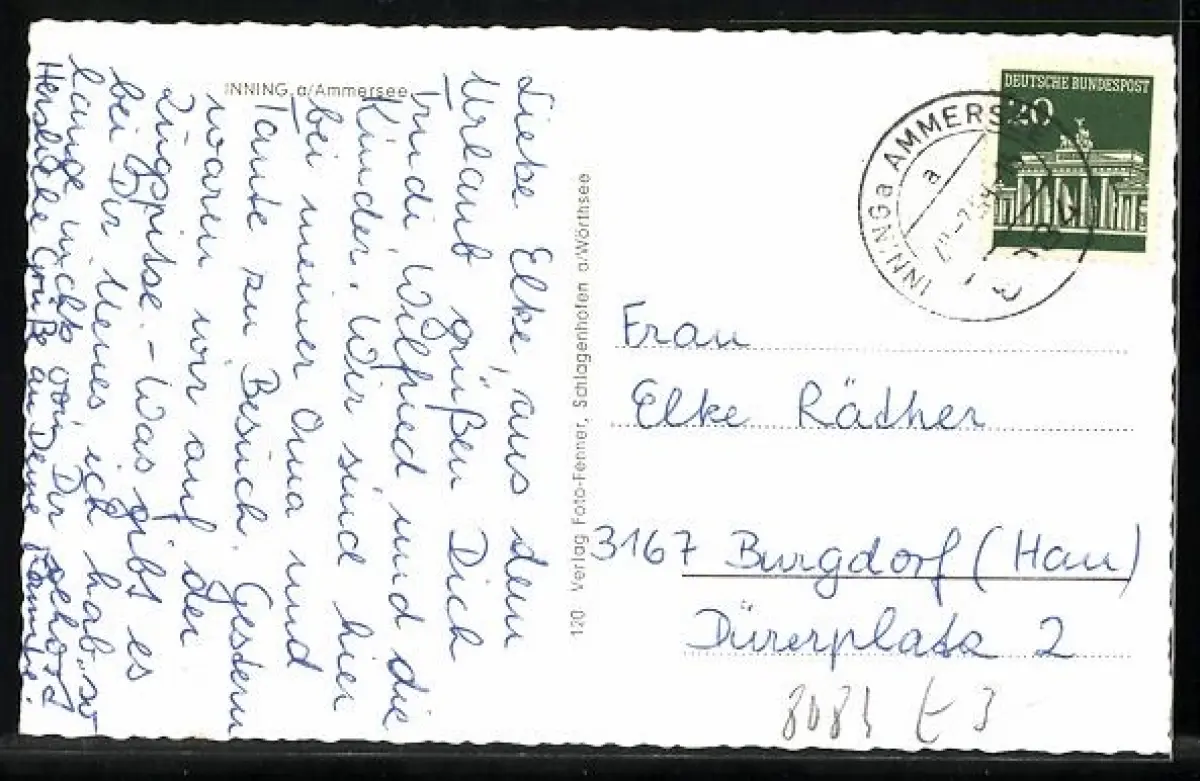 INNING a/Ammersee
Liebe Elke, aus dem
Urlaub grüßen Dich
Trudi, Wilfried und die
Kinder. Wir sind hier
bei meiner Oma und
Tante zu Besuch. Gestern
waren wir auf der
Zugspitze. - Was gibt es
bei Dir Neues, ich hab so
lange nichts von Dir gehört
Herzliche Grüße an Deine Familie.
120 Verlag Foto-Fenner, Schlagenhofen a/Wörthsee
DEUTSCHE BUNDESPOST
20
INNING a AMMERSEE
a
Frau
Elke Räther
3167 Burgdorf (Han)
Dürerplatz 2
8081 t 3